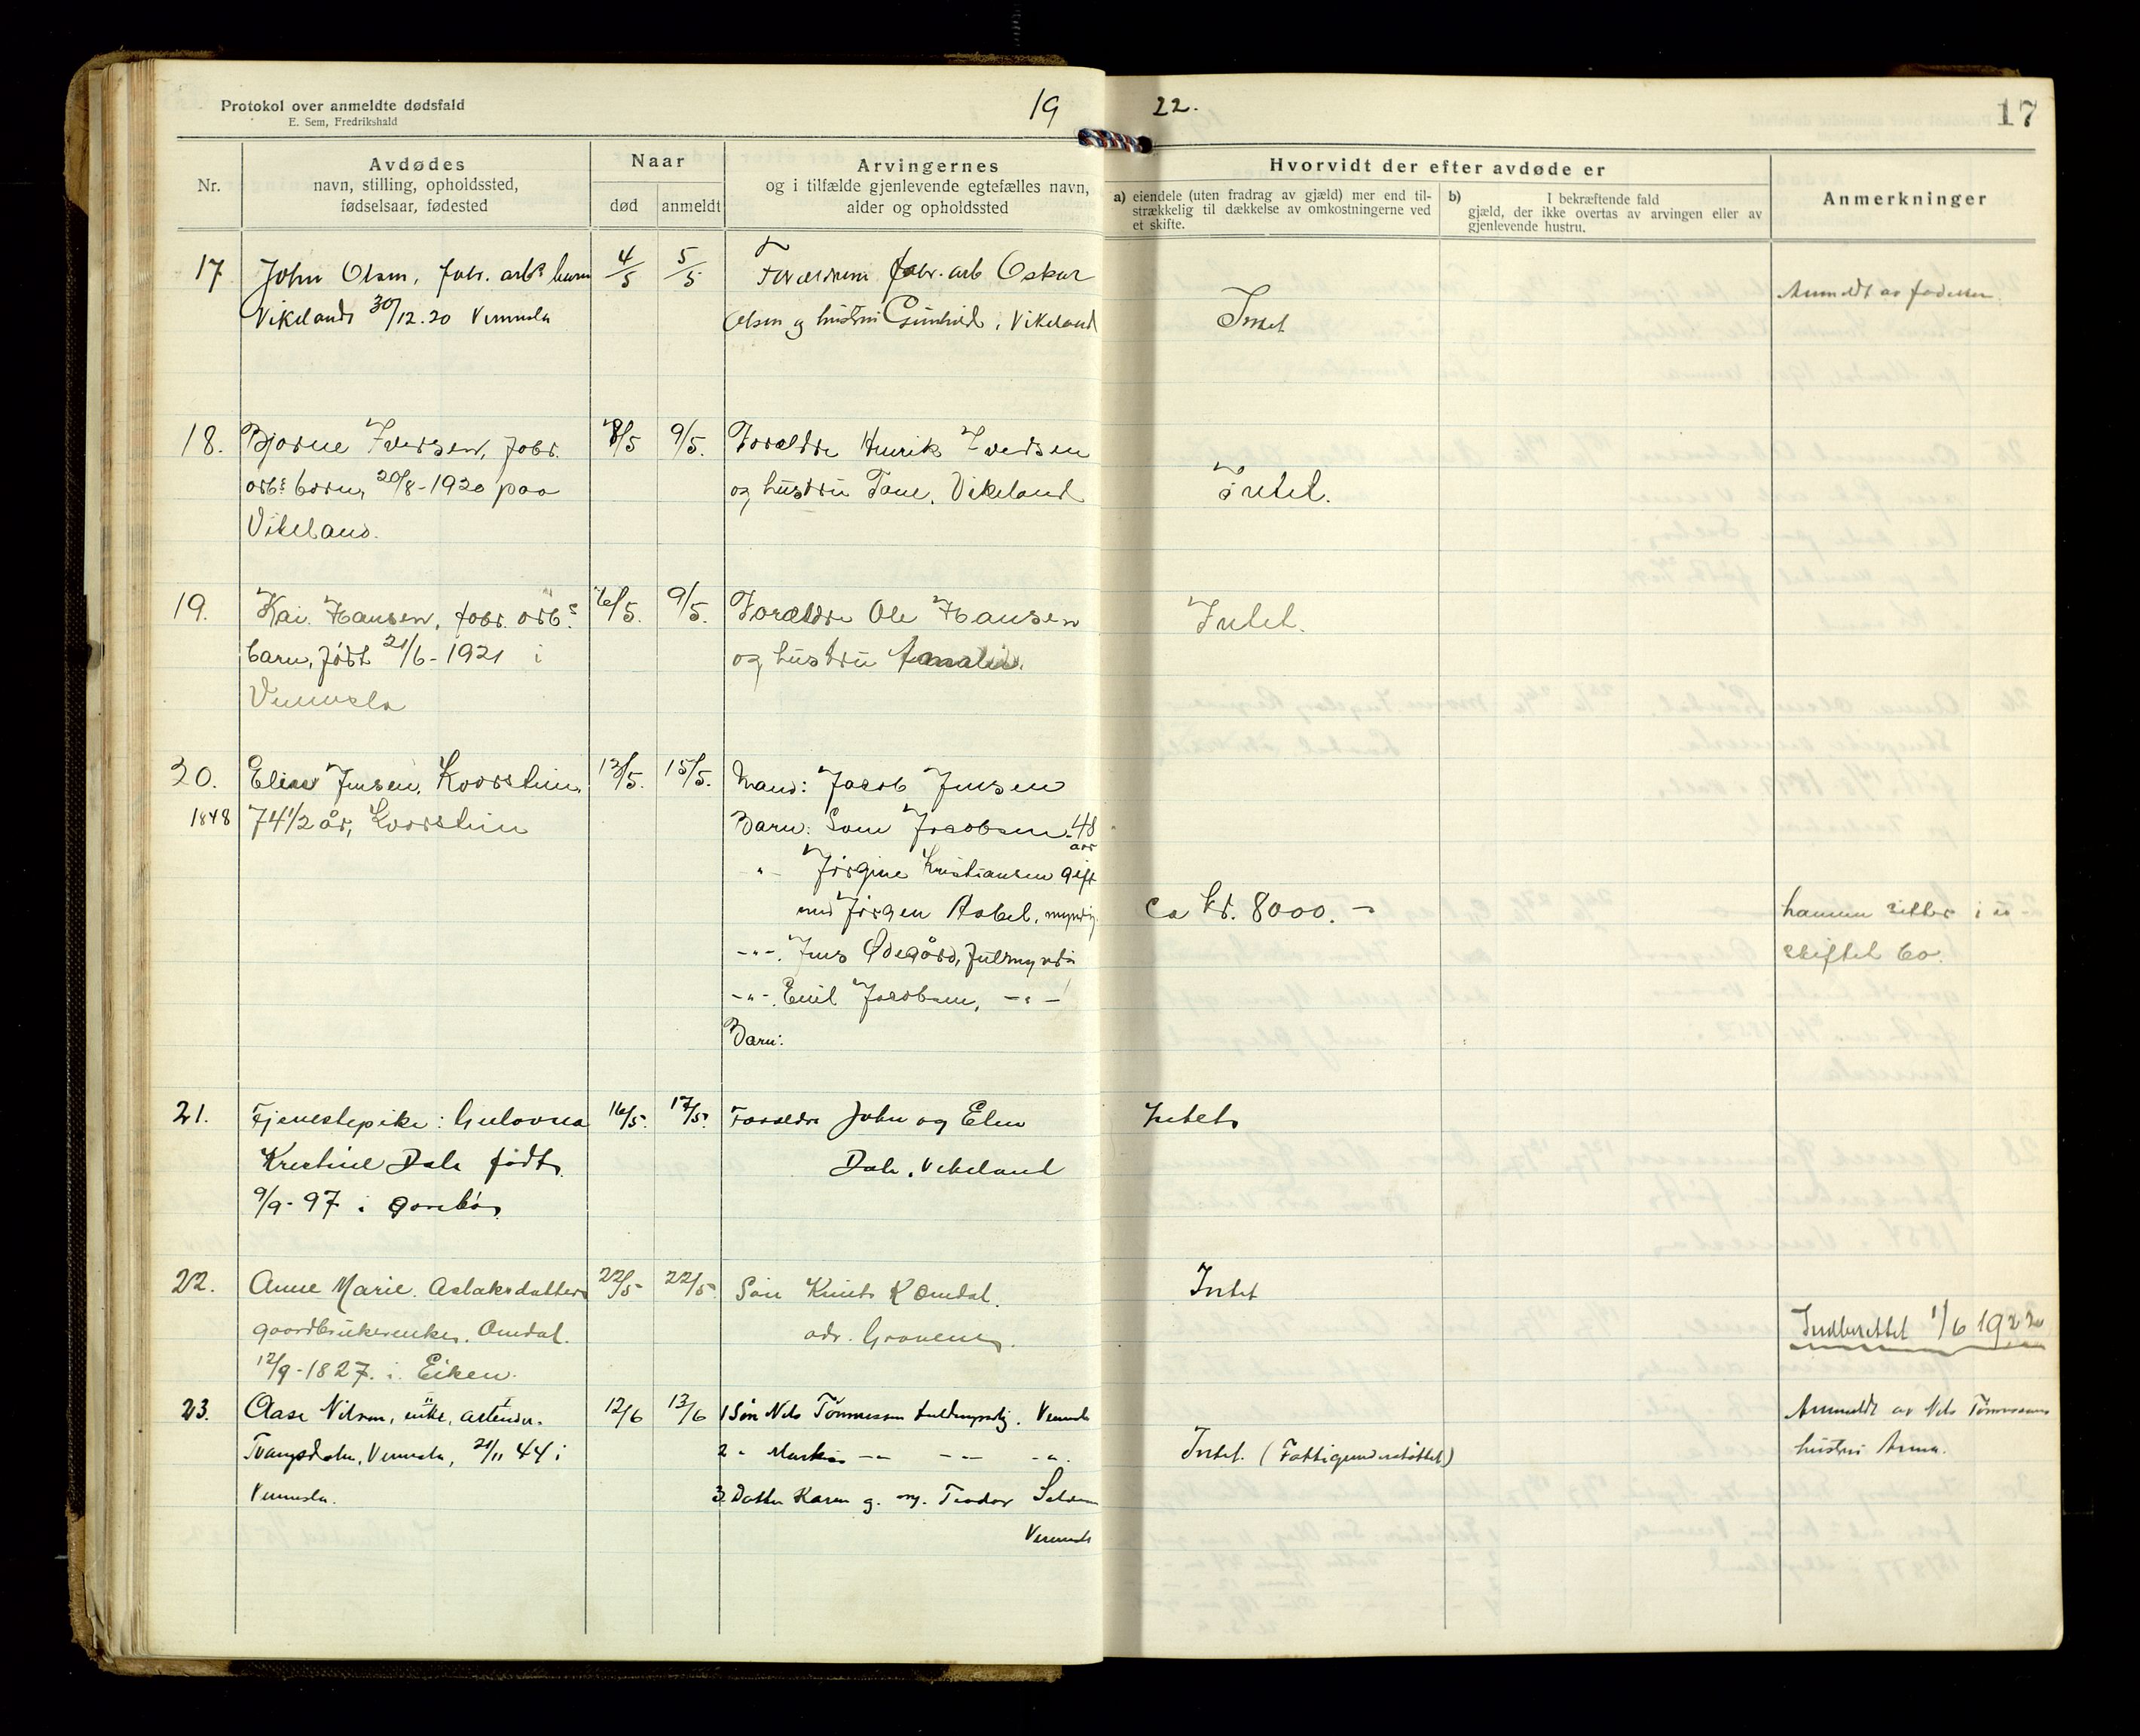 Protokol over anmeldte dødsfald
E. Sem, Fredrikshald
19 22.
17
Nr.
Avdødes
navn, stilling, opholdssted,
fødselsaar, fødested
Naar
død
anmeldt
Arvingernes
og i tilfælde gjenlevende egtefælles navn,
alder og opholdssted
Hvorvidt der efter avdøde er
a) eiendele (uten fradrag av gjæld) mer end til-
strækkelig til dækkelse av omkostningerne ved
et skifte.
b) I bekræftende fald
gjæld, der ikke overtas av arvingen eller av
gjenlevende hustru.
Anmerkninger
17
John Olsen, fabr. arbs barn
Vikeland 30/12.20 Vennesla
4/5
5/5
Forældrene fabr. arb Oskar
Olsen og hustru Gunhild, Vikeland
Intet
Anmeldt av faderen.
18.
Bjarne Iversen, fabr.
arbs barn, 20/8-1920 paa
Vikeland.
8/5
9/5.
Forældre Henrik Iversen
og hustru Tone, Vikeland
Intet.
19.
Kai Hansen, fabr. arbs
barn, født 21/6-1921 i
Vennesla
6/5.
9/5.
Forældre Ole Hansen
og hustru Amalie.
Intet.
20.
1848
Eline Jensen, Kvarstein
74 1/2 år, Kvarstein
12/5.
15/5.
Mand: Jacob Jensen
Barn: Jacobsen 48
aar
-"- Jörgine Kristiansen gift
med Jörgen Aabel, myndig.
-"-. Jens Ødegård, fuldmyndig
-"-. Emil Jacobsen, -"-
Barn:
Ca kr. 8000.-
hannen sitter i u-
skiftet bo.
21.
Tjenestepike: Gulovna
Kristine Dale født
9/9-97 i
16/5.
17/5.
Forældre John og Elen
Dale, Vikeland
Intet
22.
Anne Marie Aslaksdatter
gaardbrukerenke, Omdal.
12/9-1827. i Eiken.
22/5
22/5.
Søn Knut K Omdal.
adr. Grovene.
Intet
Indberettet 1/6 1922
23.
Aase Nilsen, enke,
Vennesla, 21/11 44 i
Vennesla.
12/6
13/6
1 Søn Nils Tönnessen fuldmyndig. Vennesla
2 " Markus -"- -"- -"-.
3. Datter Karen g. m. Teodor
Vennesla
Intet. (Fattigunderstöttet)
Anmeldt av Nils Tönnessens
hustru Anna.